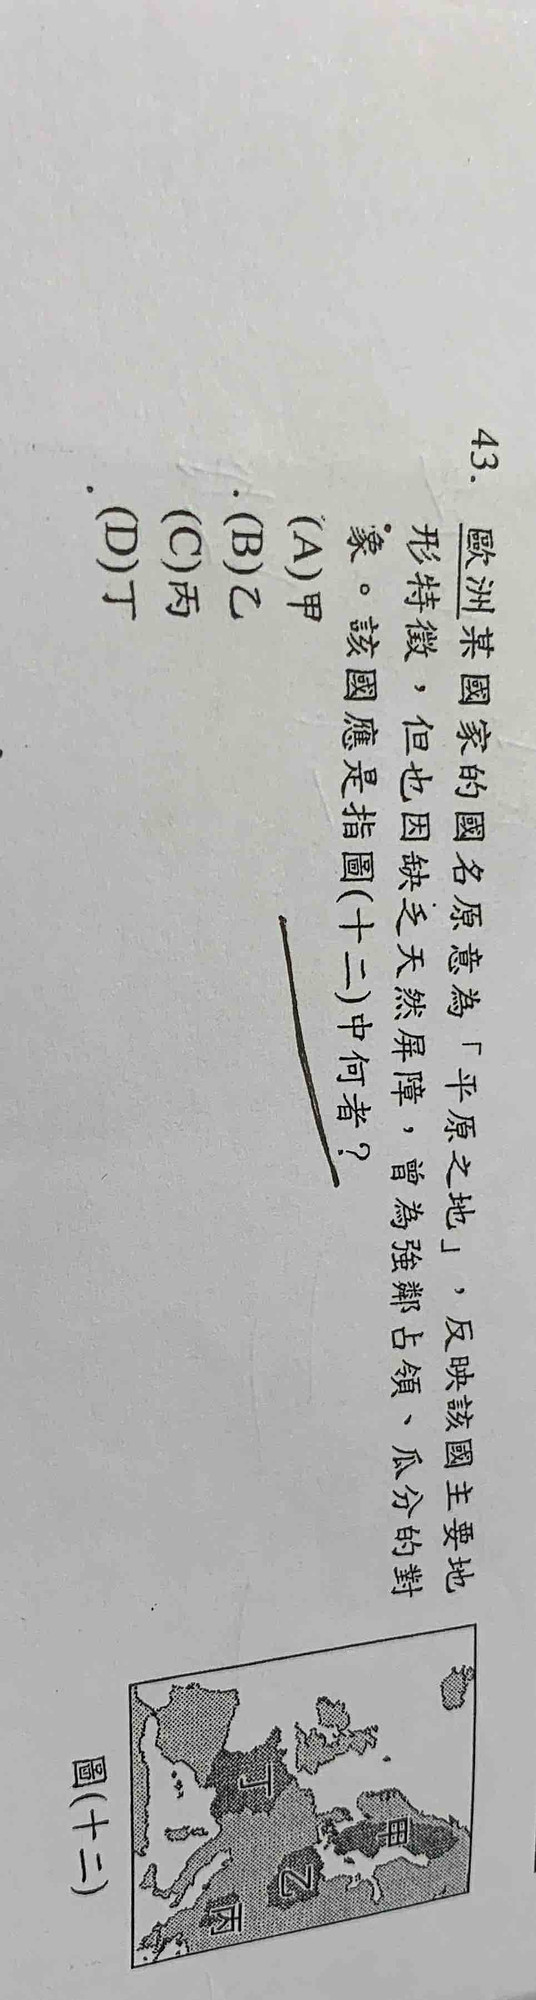 43. 歐洲某國家的國名原意為「平原之地」，反映該國主要地
形特徵，但也因缺乏天然屏障，曾為強鄰占領、瓜分的對
象。該國應是指圖(十二)中何者？
(A)甲
(B)乙
(C)丙
(D)丁
甲
乙
丙
丁
圖(十二)